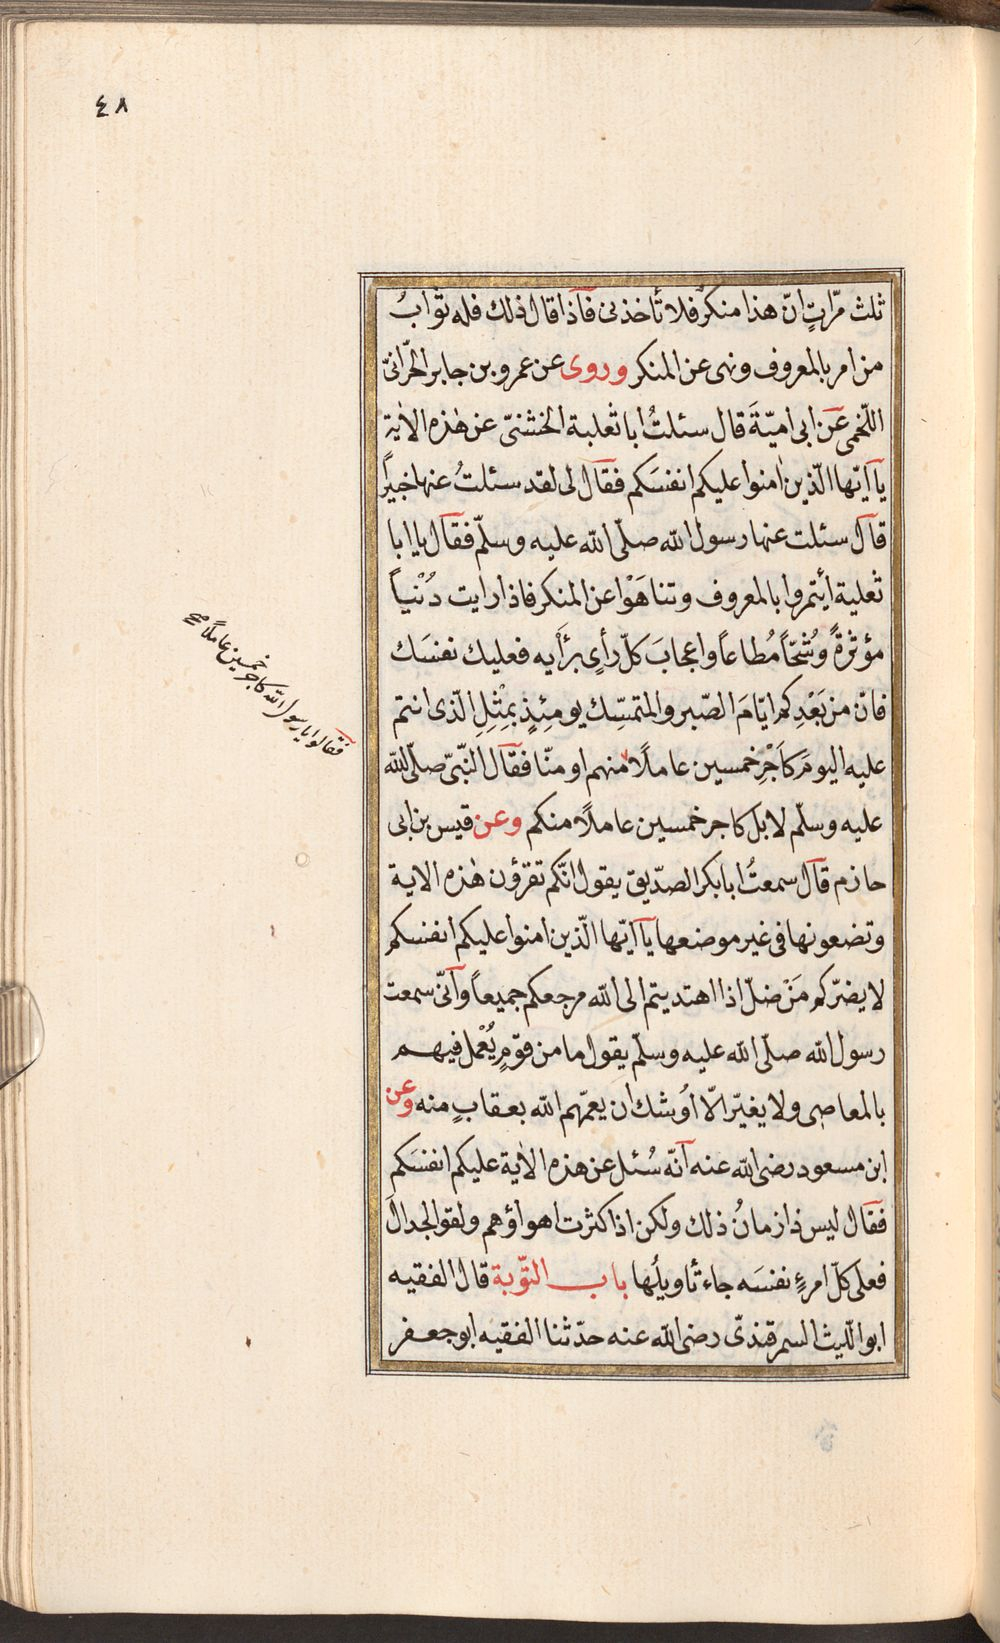 ٤٨
ثلث مرّاتٍ انّ هذا منكرٌ فلا تأخذنى فآذا قال ذلك فله ثوابُ
من امر بالمعروف ونهى عن المنكر وروى عن عمرو بن جابر الحرّانىّ
اللّخمى عن ابى اميّةَ قال سئلتُ ابا ثعلبة الخشنىّ عن هٰذه الاٰية
يآ ايّها الّذين اٰمنوا عليكم انفسَكم فقآل لى لقد سئلتُ عنها خبيراً
قآل سئلت عنها رسول الله صلّى الله عليه وسلّم فقآل يا ابا
ثعلبة أيتمروا بالمعروف وتناهَوْا عن المنكر فاذا رايت دُنْياً
مؤثرةً وشُحّاً مُطاعاً واعجابَ كلّ رأىٍ برَأيه فعليك نفسَك
فانّ من بَعْدِكم ايّامَ الصّبر والمتمسِّك يومئِذٍ بمِثْلِ الّذى انتم
عليه اليومَ كَاَجْرِ خمسين عاملًا منهم او منّا فقآل النّبىّ صلّى الله
عليه وسلّم لا بل كاجر خمسين عاملًا منكم وعن قيس بن ابى
حازم قآل سمعتُ ابا بكر الصدّيق يقول انّكم تقرؤن هٰذه الاية
وتضعونها فى غير موضعها يآ ايّها الّذين امنوا عليكم انفسكم
لا يضرّكم مَنْ ضلّ اذا اهتديتم الى الله مرجعكم جميعاً وآنّى سمعت
رسول الله صلّى الله عليه وسلّم يقول ما من قومٍ يُعْمل فيهم
بالمعاصى ولا يغيّر الّا اوُشك ان يعمّهم الله بعقابٍ منه وعن
ابن مسعود رضى الله عنه آنّه سُئل عن هذه الاٰية عليكم انفسَكم
فقآل ليس ذا زمانُ ذلك ولكن اذا كثرت اهواؤهم ولقو الجدالَ
فعلى كلّ امرءٍ نفسَه جاء تأويلُها باب التّوبة قال الفقيه
ابو اللّيث السمرقندىّ رضى الله عنه حدّثنا الفقيه ابو جعفر
فقآلوا يا رسول الله كاجر
خمسين عاملًا صح